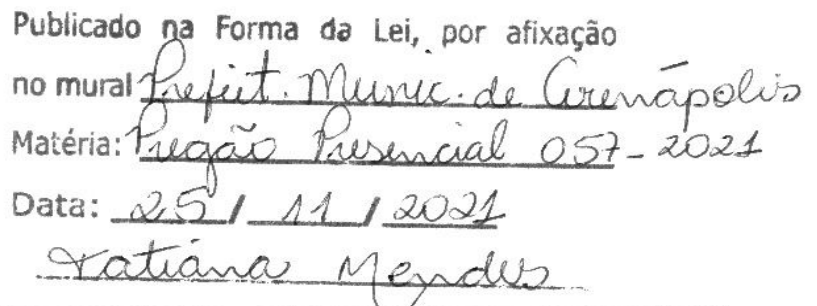 Publicado na Forma da Lei, por afixação
no mural Prefeit. Munic. de Arenápolis
Matéria: Pregão Presencial 057-2021
Data: 25 / 11 / 2021
Tatiana Mendes